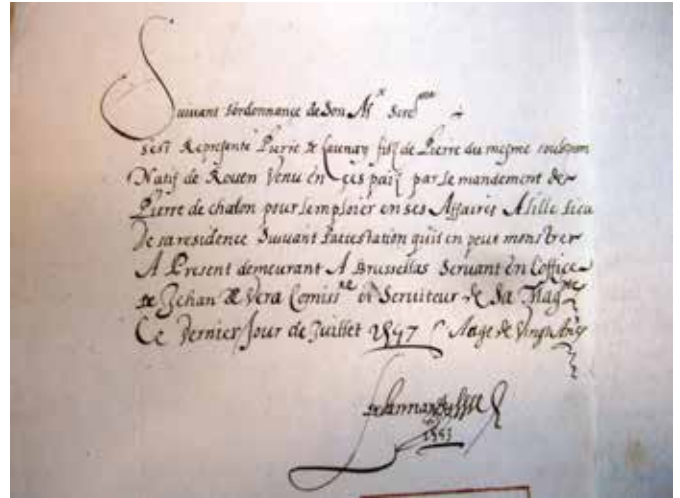 Suivant lordonnance de Son Al^x Sere^me
sest Represente Pierre de Launay filz de Pierre du mesme
Natif de Rouen Venu en ces paiz par le mandement de
Pierre de chalon pour lemploier en ses Affaires A lille lieu
De sa residence Suivant lattestation quil en peut monstrer
A Present demeurant A Brussellas Servant en Loffice
de Jehan de Vera Comiss^re et Serviteur de Sa Mag^te
Ce dernier Jour de Juillet 1597 Aage de Vingt Ans